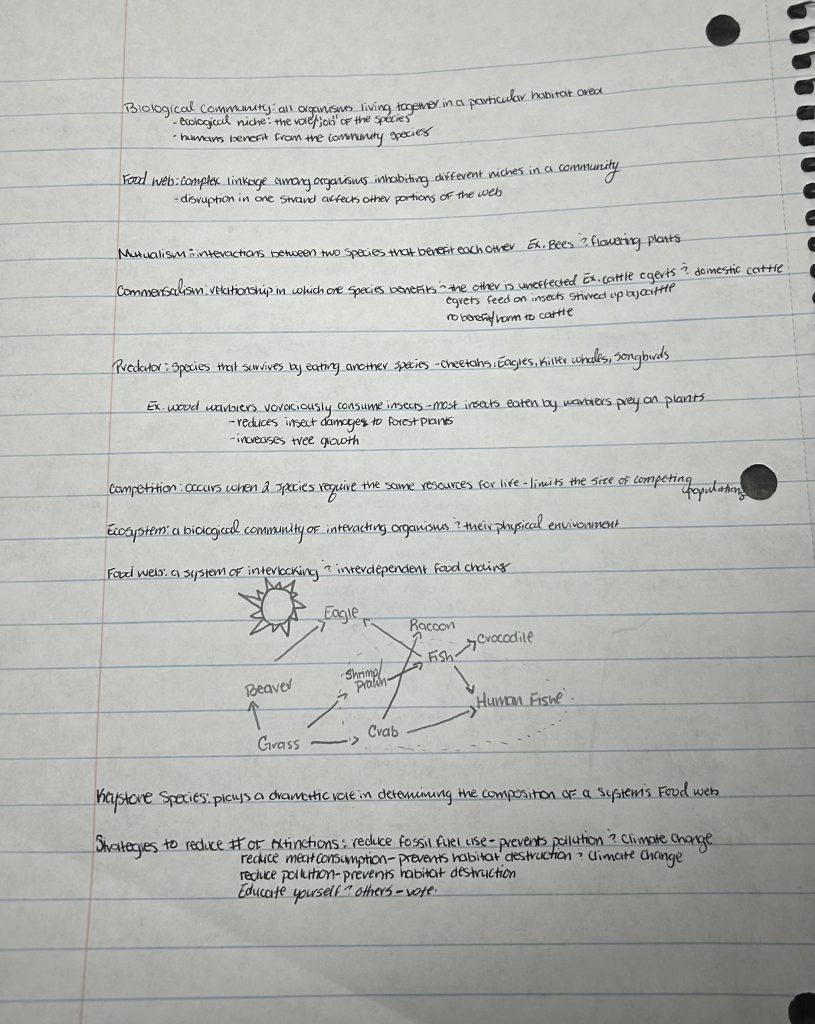 Biological Community: all organisms living together in a particular habitat area
- ecological niche: the role/"job" of the species
- humans benefit from the community species
Food web: complex linkage among organisms inhabiting different niches in a community
- disruption in one strand affects other portions of the web
Mutualism: interactions between two species that benefit each other Ex. Bees & flowering plants
Commensalism: relationship in which one species benefits & the other is uneffected Ex. cattle egerts & domestic cattle
egrets feed on insects stirred up by cattle
no benefit/harm to cattle
Predator: species that survives by eating another species - cheetahs, Eagles, Killer whales, songbirds
Ex. wood warblers voraciously consume insects - most insects eaten by warblers prey on plants
- reduces insect damages to forest plants
- increases tree growth
Competition: occurs when 2 species require the same resources for life - limits the size of competing
populations
Ecosystem: a biological community of interacting organisms & their physical environment
Food web: a system of interlocking & interdependent food chains
Eagle
Racoon
Crocodile
Fish
Shrimp/
Prawn
Beaver
Human Fisher
Crab
Grass
Keystone Species: plays a dramatic role in determining the composition of a system's food web
Strategies to reduce # of extinctions: reduce fossil fuel use - prevents pollution & climate change
reduce meat consumption - prevents habitat destruction & climate change
reduce pollution - prevents habitat destruction
Educate yourself & others - vote.